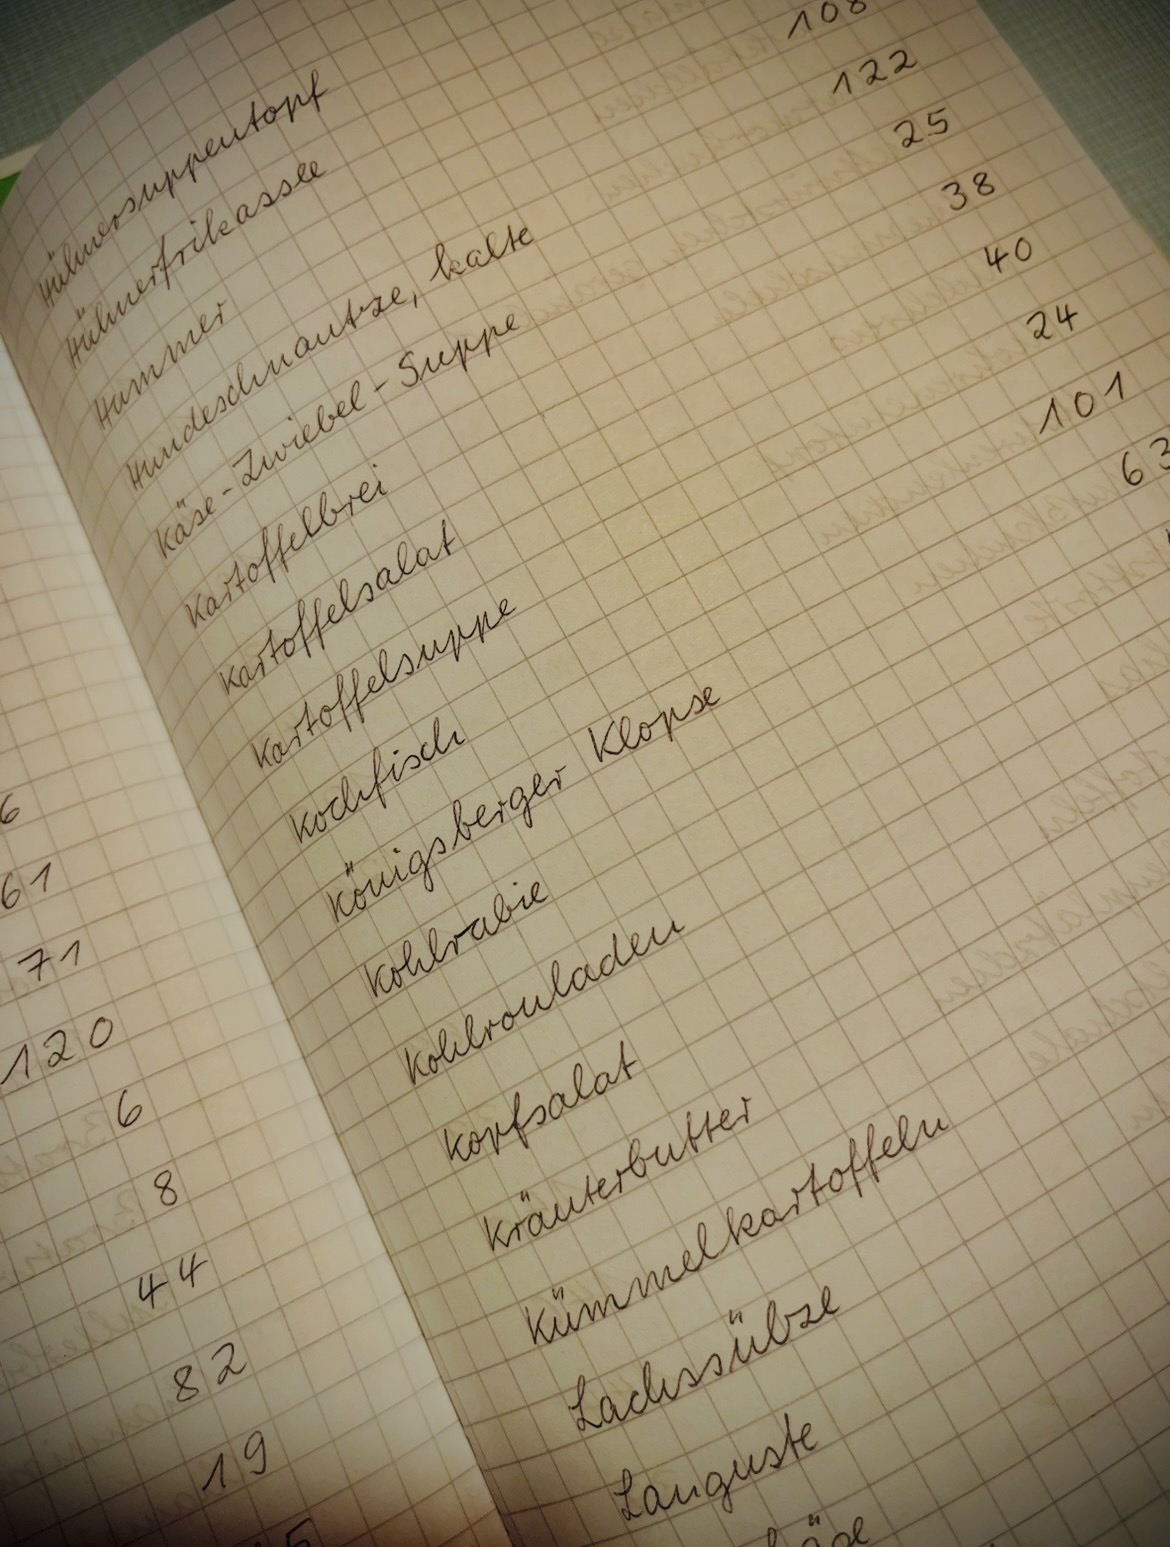 6
61
71
120
6
8
44
82
19
Hühnersuppentopf
Hühnerfrikassee
Hummer 108
Hundeschnautze, kalte 122
Käse-Zwiebel-Suppe 25
Kartoffelbrei 38
Kartoffelsalat 40
Kartoffelsuppe 24
Kochfisch 101
Königsberger Klopse 63
Kohlrabie
Kohlrouladen
Kopfsalat
Kräuterbutter
Kümmelkartoffeln
Lachssülze
Languste